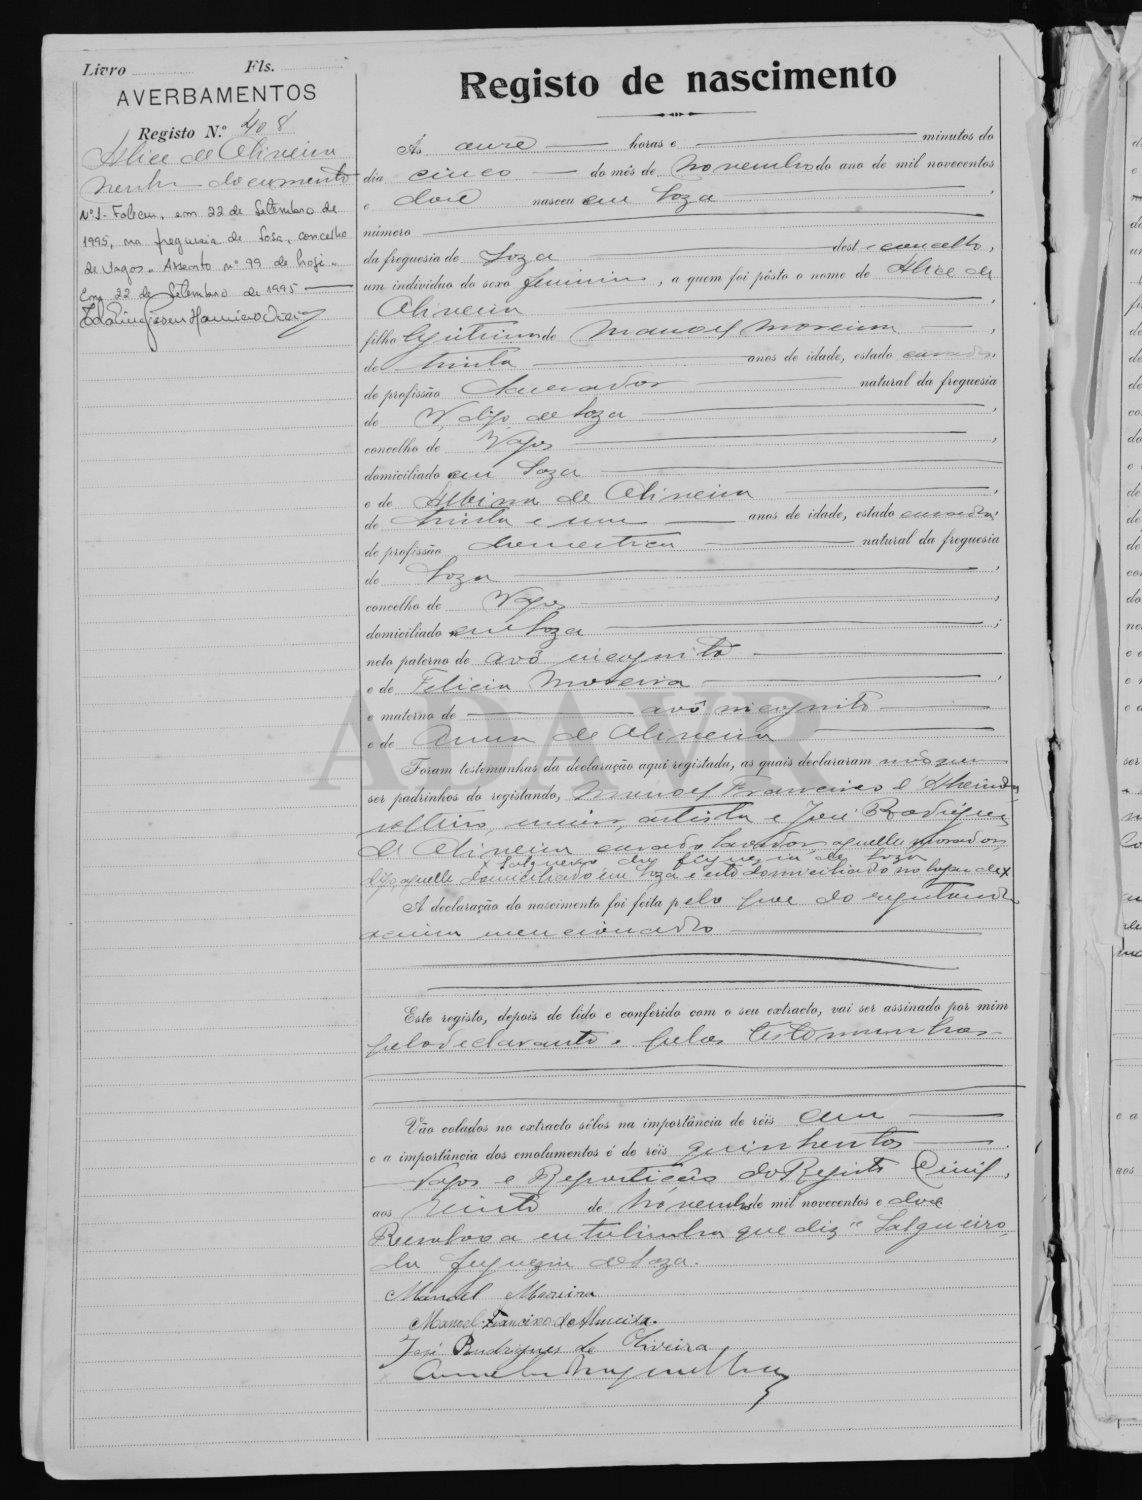 Livro Fls.
AVERBAMENTOS
Registo N.º 408
Alice de Oliveira
Nenhum documento
Nº1 - Faleceu, em 22 de Setembro de
1995, na freguesia de Sosa, concelho
de Vagos. Assento nº 99 de hoje.
Em 22 de Setembro de 1995
Registo de nascimento
Ás onze horas e minutos do
dia cinco do mês de Novembro do ano de mil novecentos
e doze nasceu em Soza
número
da freguesia de Soza dest concelho,
um indivíduo do sexo feminino, a quem foi pôsto o nome de Alice de
Oliveira
filho legitimo de Manoel Moreira
de trinta anos de idade, estado casado,
de profissão lavrador natural da freguesia
de V, digo, de Soza
concelho de Vagos
domiciliado em Soza
e de Albina de Oliveira
de trinta e um anos de idade, estado casada,
de profissão domestica natural da freguesia
de Soza
concelho de Vagos
domiciliado em Soza
neto paterno de avô incognito
e de Felicia Moreira
e materno de avô incognito
e de Anna de Oliveira
ADAVR
Foram testemunhas da declaração aqui registada, as quais declararam não
ser padrinhos do registando, Manoel Francisco d'Almeida
solteiro, maior, artista e José Rodrigues
de Oliveira casado lavrador, aquelle morador
x Salgueiro da freguesia de Soza
digo, aquelle domiciliado em Soza e este domiciliado no lugar de x
A declaração do nascimento foi feita pelo pae do registando
acima mencionado
Este registo, depois de lido e conferido com o seu extracto, vai ser assinado por mim
pelo declarante e pelas testemunhas
Vão colados no extracto sêlos na importância de réis cem
e a importância dos emolumentos é de réis quinhentos
Vagos e Repartição do Registo Civil,
aos vinte de Novembro de mil novecentos e doze
Resalvo a entrelinha que diz "Salgueiro
da freguezia de Soza.
Manoel Moreira
Manoel Francisco de Almeida.
José Rudrigues de Oliveira